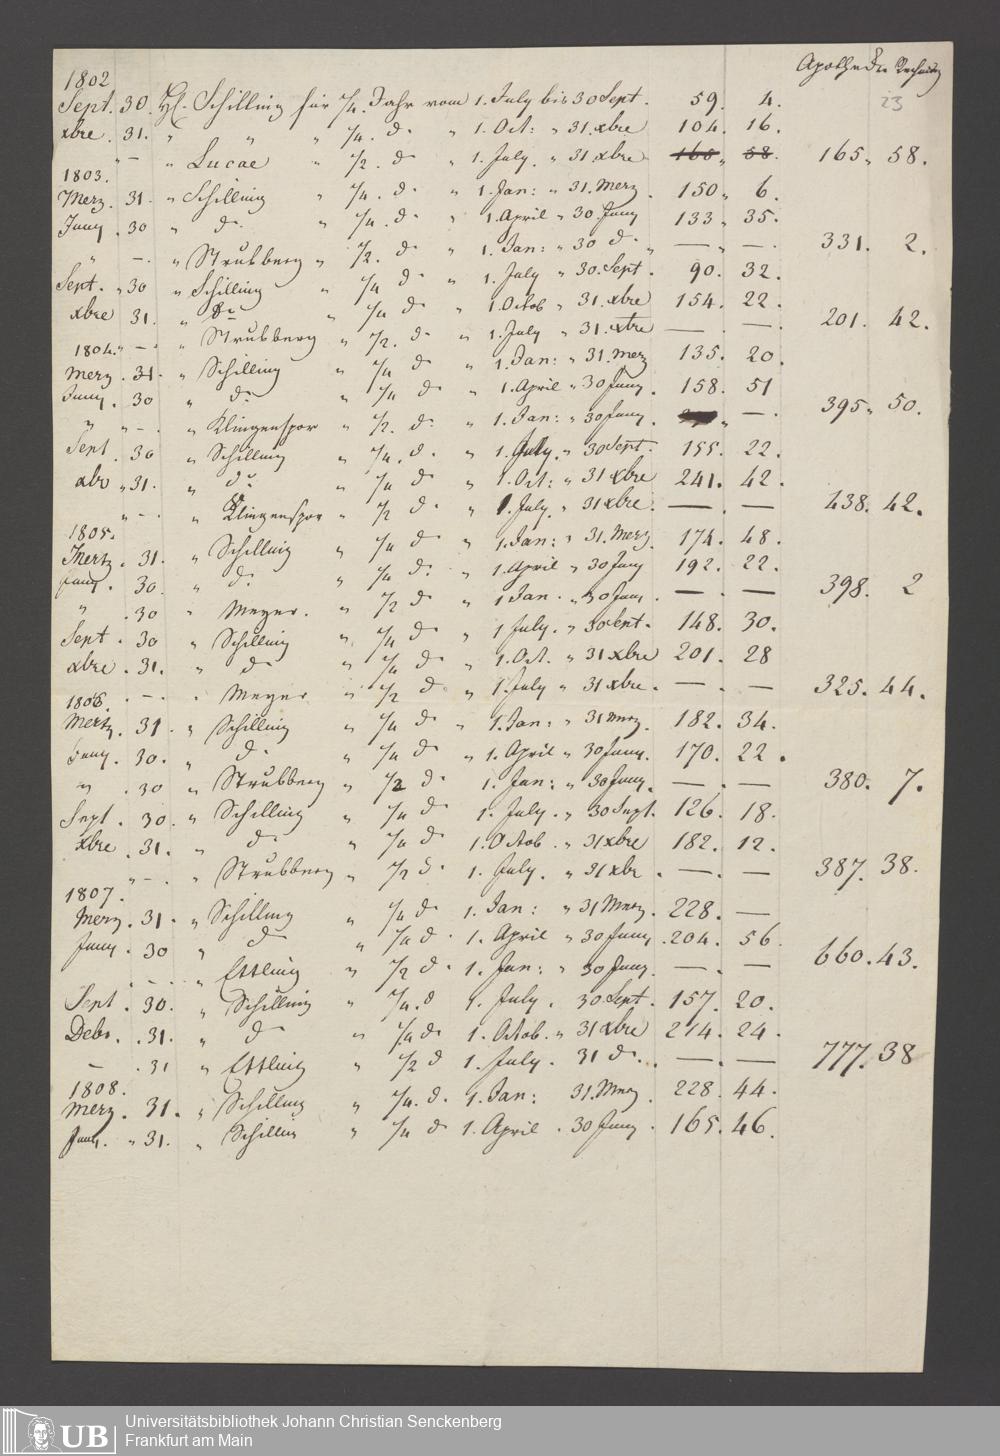 Apotheker Rechnung
23
1802
Sept. 30. H. Schilling für 1/4. Jahr vom 1. July bis 30 Sept. 59. 4.
xbre. 31. " " " 1/4. do. " 1. Oct: " 31. xbre 104. 16.
" — " Lucae " 1/2. do " 1. July. " 31 xbre 165 " 58. 165 " 58.
1803.
Merz. 31. " Schilling " 1/4. do " 1. Jan: " 31. Merz. 150 " 6.
Juny. 30 " do. " 1/4. do. " 1. April " 30. Juny 133 " 35.
" —. " Strubberg " 1/2. do. " 1. Jan: " 30 do " — " —. 331. 2.
Sept. " 30 " Schilling " 1/4 do " 1. July " 30. Sept. 90. 32.
xbre 31. " do " 1/4 do " 1. Octob " 31. xbre 154. 22.
" — . " Strubberg " 1/2. do. " 1. July " 31. xbre — . —. 201. 42.
1804.
Merz. 31. " Schilling " 1/4 do " 1. Jan: " 31. Merz 135. 20.
Juny. 30 " do. " 1/4 do " 1. April " 30 Juny. 158. 51
" " — . " Klingenspor " 1/2. do. " 1. Jan: " 30 Juny. " —. 395 " 50.
Sept. 30 " Schilling " 1/4. do. " 1. July. " 30 Sept. 155. 22.
xbr " 31. " do. " 1/4 do " 1. Oct: " 31 xbre 241. 42.
" — . " Klingenspor " 1/2 do " 1. July. " 31 xbre. — . — 438. 42.
1805.
Mertz. 31. " Schilling " 1/4 do " 1. Jan: " 31. Merz. 174. 48.
Juny. 30. " do. " 1/4 do. " 1. April " 30 Juny 192. 22.
" . 30 " Meyer. " 1/2 do " 1 Jan. " 30 Juny. — . — 398. 2
Sept. 30 " Schilling " 1/4 do " 1 July. " 30 Sept. 148. 30.
xbre. 31. " do " 1/4 do " 1. Oct. " 31 xbre 201. 28
. — . " Meyer " 1/2 do " 1. July " 31 xbre. — . — 325. 44.
1806.
Mertz. 31. " Schilling " 1/4 do " 1. Jan: " 31 Merz. 182. 34.
Juny. 30. " do. " 1/4 do " 1. April " 30 Juny. 170. 22.
" . 30 " Strubberg " 1/2 do. 1. Jan: " 30 Juny. — . — . 380. 7.
Sept. 30. " Schilling " 1/4 do 1. July. " 30 Sept. 126. 18.
xbre. 31. " do " 1/4 do 1. Octob. " 31 xbre 182. 12.
" — . " Strubberg " 1/2 do. 1. July. " 31 xbr. — . — 387. 38.
1807.
Merz. 31. " Schilling " 1/4 do 1. Jan: " 31 Merz. 228. —
Juny. 30 " do " 1/4 do. 1. April " 30 Juny. 204. 56.
. — . " Ettling " 1/2 do. 1. Jan: " 30 Juny. — . — 660. 43.
Sept. 30. " Schilling " 1/4. do 1. July. 30 Sept. 157. 20.
Debr. 31. " do " 1/4 do 1. Octob. " 31 xbre 214. 24.
— . 31 " Ettling " 1/2 do 1. July. 31 do. — . — 777. 38
1808.
Merz. 31. " Schilling " 1/4. do. 1. Jan: 31. Merz 228. 44.
Juny. " 31. " Schilling " 1/4 do 1. April. 30 Juny. 165. 46.
UB Universitätsbibliothek Johann Christian Senckenberg
Frankfurt am Main